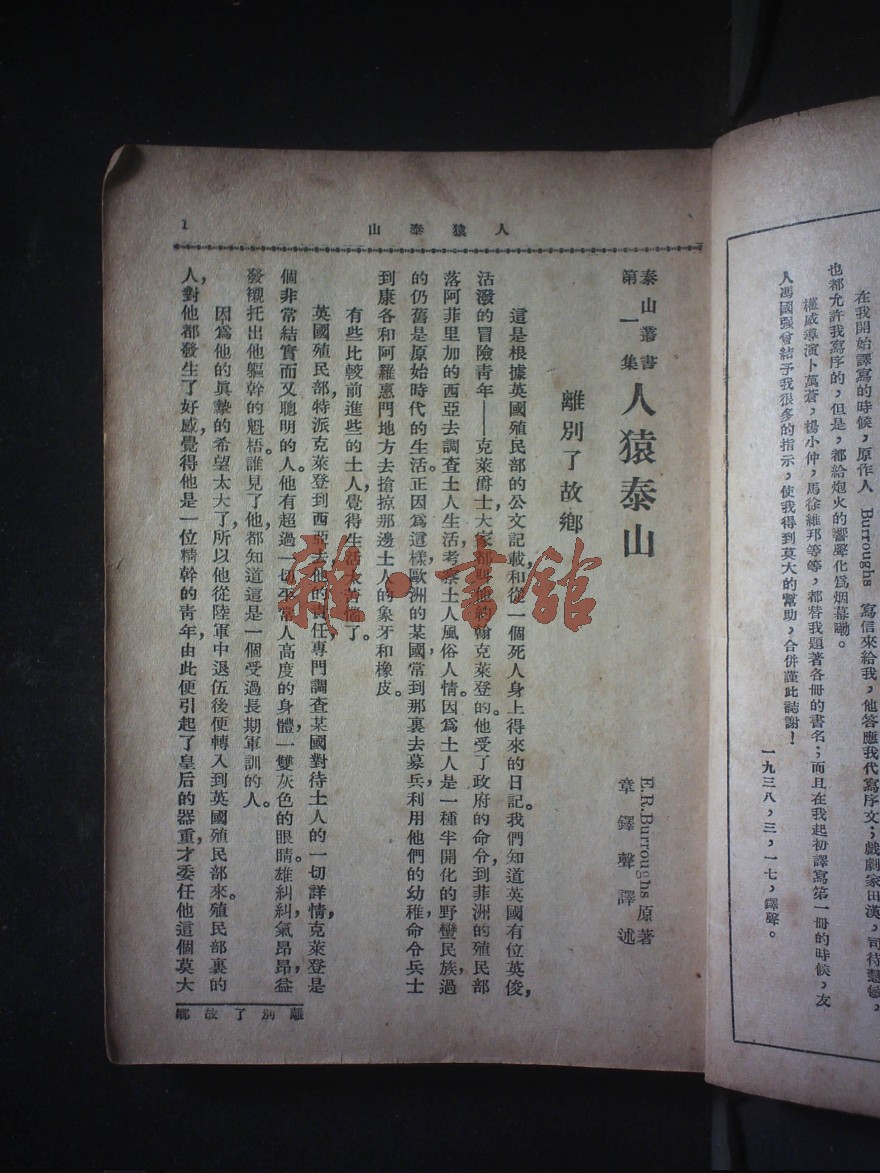 在我開始譯寫的時候，原作人 Burroughs 寫信來給我，他答應我代寫序文；戲劇家田漢，司徒慧敏，
也都允許我寫序的，但是，都給炮火的響聲化爲烟幕嘞。
權威導演卜萬蒼，楊小仲，馬徐維邦等等，都替我題著各冊的書名；而且在我起初譯寫第一冊的時候，友
人馮國强曾給予我很多的指示，使我得到莫大的幫助，合併謹此誌謝！
一九三八，三，一七，鐸聲。
人猿泰山
1
泰山叢書
第一集
人猿泰山
E.R.Burroughs 原著
章鐸聲譯述
離別了故鄉
這是根據英國殖民部的公文記載，和從一個死人身上得來的日記。我們知道英國有位英俊，
活潑的冒險青年——克萊爵士，大家都叫他約翰克萊登的。他受了政府的命令，到菲洲的殖民部
落阿菲里加的西亞去調查土人生活，考察土人風俗人情。因爲土人是一種半開化的野蠻民族，過
的仍舊是原始時代的生活。正因爲這樣，歐洲的某國，常到那裏去募兵，利用他們的幼稚，命令兵士
到康各和阿羅惠門地方去搶掠那邊土人的象牙和橡皮。
有些比較前進些的土人，覺得生活太苦惱了。
英國殖民部，特派克萊登到西亞去，他的責任專門調查某國對待土人的一切詳情，克萊登是
個非常結實而又聰明的人。他有超過一切平常人高度的身體，一雙灰色的眼睛。雄糾糾，氣昂昂，益
發襯托出他軀幹的魁梧。誰見了他，都知道這是一個受過長期軍訓的人。
因爲他的眞摯的希望太大了，所以他從陸軍中退伍後，便轉入到英國殖民部來。殖民部裏的
人，對他都發生了好感，覺得他是一位精幹的青年，由此便引起了皇后的器重，才委任他這個莫大
離別了故鄉
雜·書館